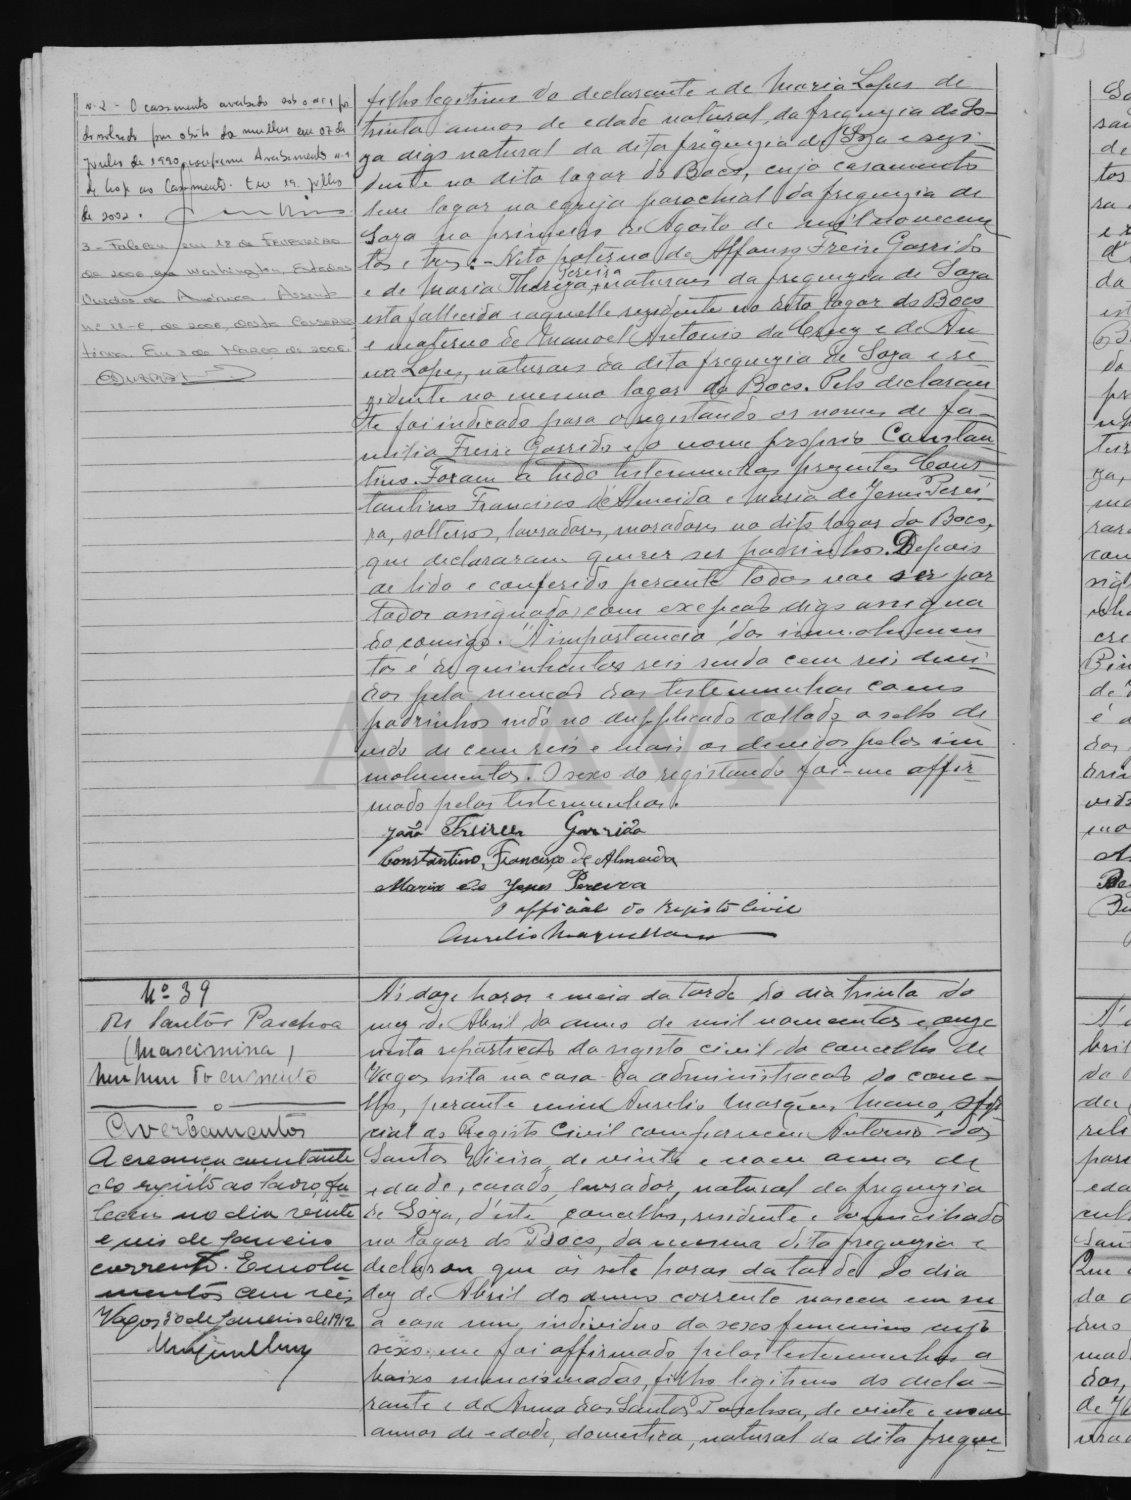 nº 2 - O casamento averbado sob o nº 1 foi
dissolvido por óbito da mulher em 07 de
Junho de 1990, conforme Averbamento nº 1
de hoje ao Casamento. Em 19. Julho
de 2002.
3 - Faleceu em 18 de Fevereiro
de 2006 em Washington, Estados
Unidos da América. Assento
nº 11-C, de 2006, desta Conserva
tória. Em 3 de Março de 2006.
filho legitimo do declarante e de Maria Lopes de
trinta annos de edade natural, da freguezia de So-
za digo natural da dita freguezia de Soza e resi-
dente no dito lagar do Boco, cujo casamento
teve lugar na egreja parochial da freguezia de
Soza no primeiro de Agosto de mil novecen
tos e tres. - Neto paterno de Affonso Freire Garrido
e de Maria Thereza Pereira, naturaes da freguezia de Soza
esta fallecida e aquelle rezidente no dito lagar do Boco
e materno de Manoel Antonio da Cruz e de An
na Lopes, naturaes da dita freguezia de Soza e re
zidente no mesmo lagar do Boco. Pelo declaran
te foi indicado para o registando os nomes de fa-
milia Freire Garrido e o nome proprio Constan
tino. Foram a tudo testemunhas prezentes Cons
tantino Francisco d'Almeida e Maria de Jesus Perei-
ra, solteiros, lavradores, moradores no dito lagar do Boco,
que declararam querer ser padrinhos. Depois
de lido e conferido perante todos vae ser por
todos assignado com excepção digo assigna
do comigo. A importancia dos immolumen
tos é de quinhentos reis sendo cem reis devi-
dos pela menção das testemunhas como
padrinhos indo no dupplicado collado o sello de
vido de cem reis e mais os devidos pelos im
molumentos. O sexo do registando foi-me affir-
mado pelas testemunhas.
João Freire Garrido
Constantino Francisco de Almeida
Maria de Jesus Pereira
O official do Registo Civil
Aurelio Marques Mano
Nº 39
dos Santos Paschoa
(Mascimina)
Nenhum documento
Averbamentos
A creança constante
do registo ao lado, fa-
leceu no dia vinte
e seis de Janeiro
corrente. Emolu
mentos cem reis
Vagos 30 de Janeiro de 1912
A's doze horas e meia da tarde do dia trinta do
mez de Abril do anno de mil novecentos e onze
nesta repartição do registo civil do concelho de
Vagos sita na casa da administração do conce-
lho, perante mim Aurelio Marques Mano, offi
cial do Registo Civil compareceu Antonio dos
Santos Vieira, de vinte e nove annos de
edade, casado, lavrador, natural da freguezia
de Soza, d'este concelho, residente e domiciliado
no lagar do Boco, da mesma dita freguezia e
declarou que ás sete horas da tarde do dia
dez de Abril do anno corrente nasceu em su
a casa um individuo do sexo femenino cujo
sexo me foi affirmado pelas testemunhas a
baixo mencionadas, filho legitimo do decla-
rante e de Anna dos Santos Paschoa, de vinte e nove
annos de edade, domestica, natural da dita fregue-
ADAVR